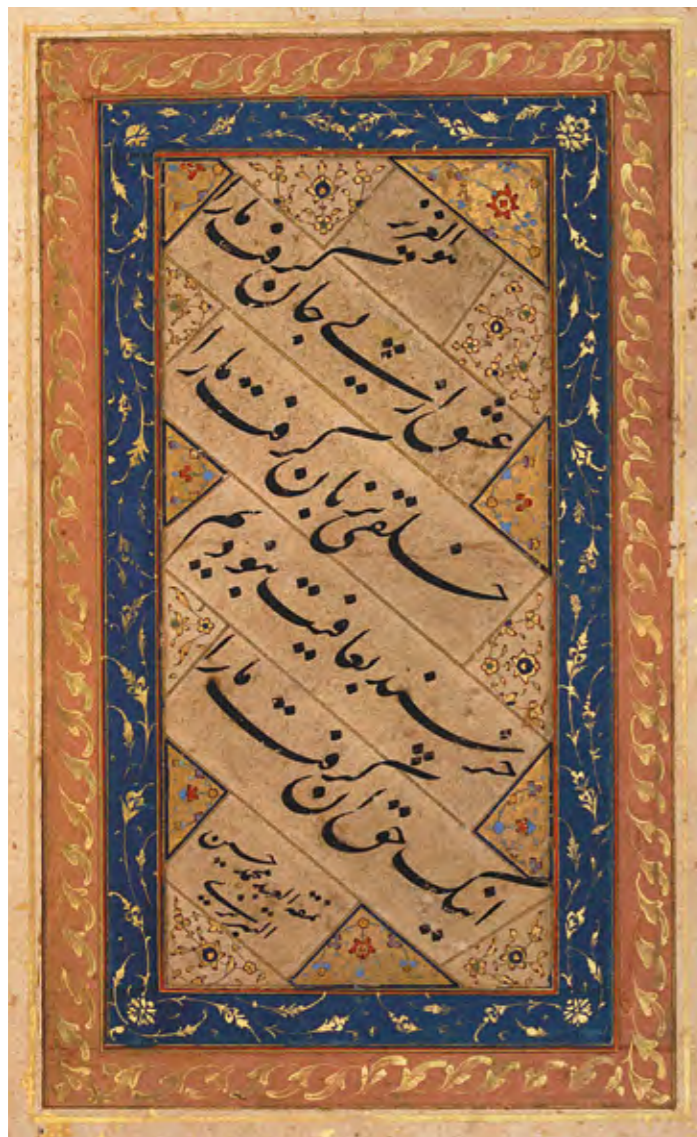 هو العزیز
عشق از پی جان گرفت ما را
خلقی بزبان گرفت ما را
خرسند بعافیت نبودیم
اینک حق آن گرفت ما را
نمقه العبد محمد حسین
التبریزی